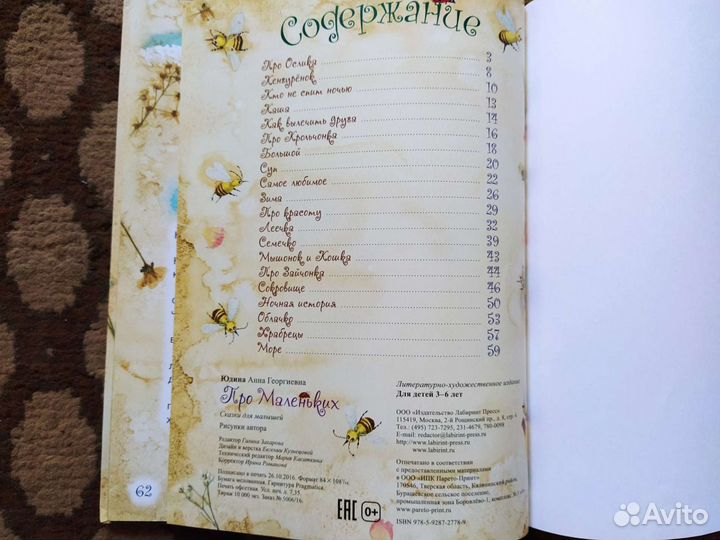 Содержание
Про Ослика 3
Кенгурёнок 8
Кто не спит ночью 10
Каша 13
Как вылечить друга 14
Про Крольчонка 16
Большой 18
Суп 20
Самое любимое 22
Зима 26
Про красоту 29
Лесенка 32
Семечко 39
Мышонок и Кошка 43
Про Зайчонка 44
Сокровище 46
Ночная история 50
Облачко 53
Храбрецы 57
Море 59
Юдина Анна Георгиевна
Про Маленьких
Сказки для малышей
Рисунки автора
Редактор Галина Захарова
Дизайн и верстка Евгении Кузнецовой
Технический редактор Мария Касаткина
Корректор Ирина Романова
Подписано в печать 26.10.2016. Формат 84 × 108 1/16.
Бумага мелованная. Гарнитура Pragmatica.
Печать офсетная. Усл. печ. л. 7,35.
Тираж 10 000 экз. Заказ № 5006/16.
Литературно-художественное издание
Для детей 3–6 лет
ООО «Издательство Лабиринт Пресс»
115419, Москва, 2-й Рощинский пр., д. 8, стр. 4
Тел.: (495) 723-7295, 231-4679, 780-0098
E-mail: redactor@labirint-press.ru
http://www.labirint-press.ru
www.labirint.ru
Отпечатано в соответствии
с предоставленными материалами
в ООО «ИПК Парето-Принт»
170546, Тверская область, Калининский район,
Бурашевское сельское поселение,
промышленная зона Боровлёво-1, комплекс
www.pareto-print.ru
ISBN 978-5-9287-2778-9
EAC 0+
62
Avito